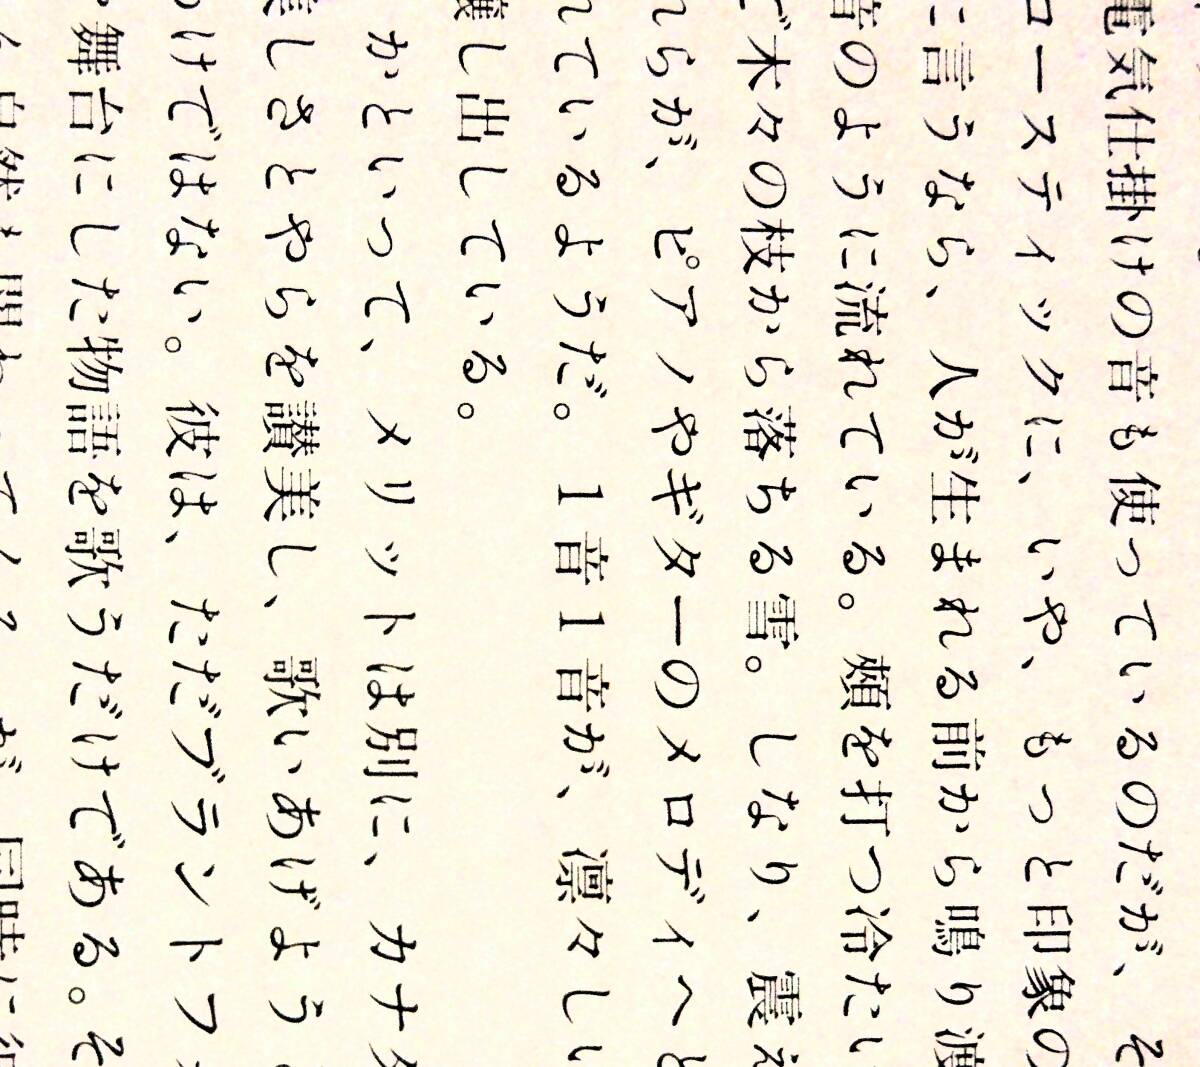 電気仕掛けの音も使っているのだが、そ
ロースティックに、いや、もっと印象の
に言うなら、人が生まれる前から鳴り渡
音のように流れている。頬を打つ冷たい
で木々の枝から落ちる雪。しなり、震え
れらが、ピアノやギターのメロディへと
れているようだ。1音1音が、凛々しい
醸し出している。
かといって、メリットは別に、カナダ
美しさとやらを讃美し、歌いあげよう
わけではない。彼は、ただブラントフォ
舞台にした物語を歌うだけである。そ